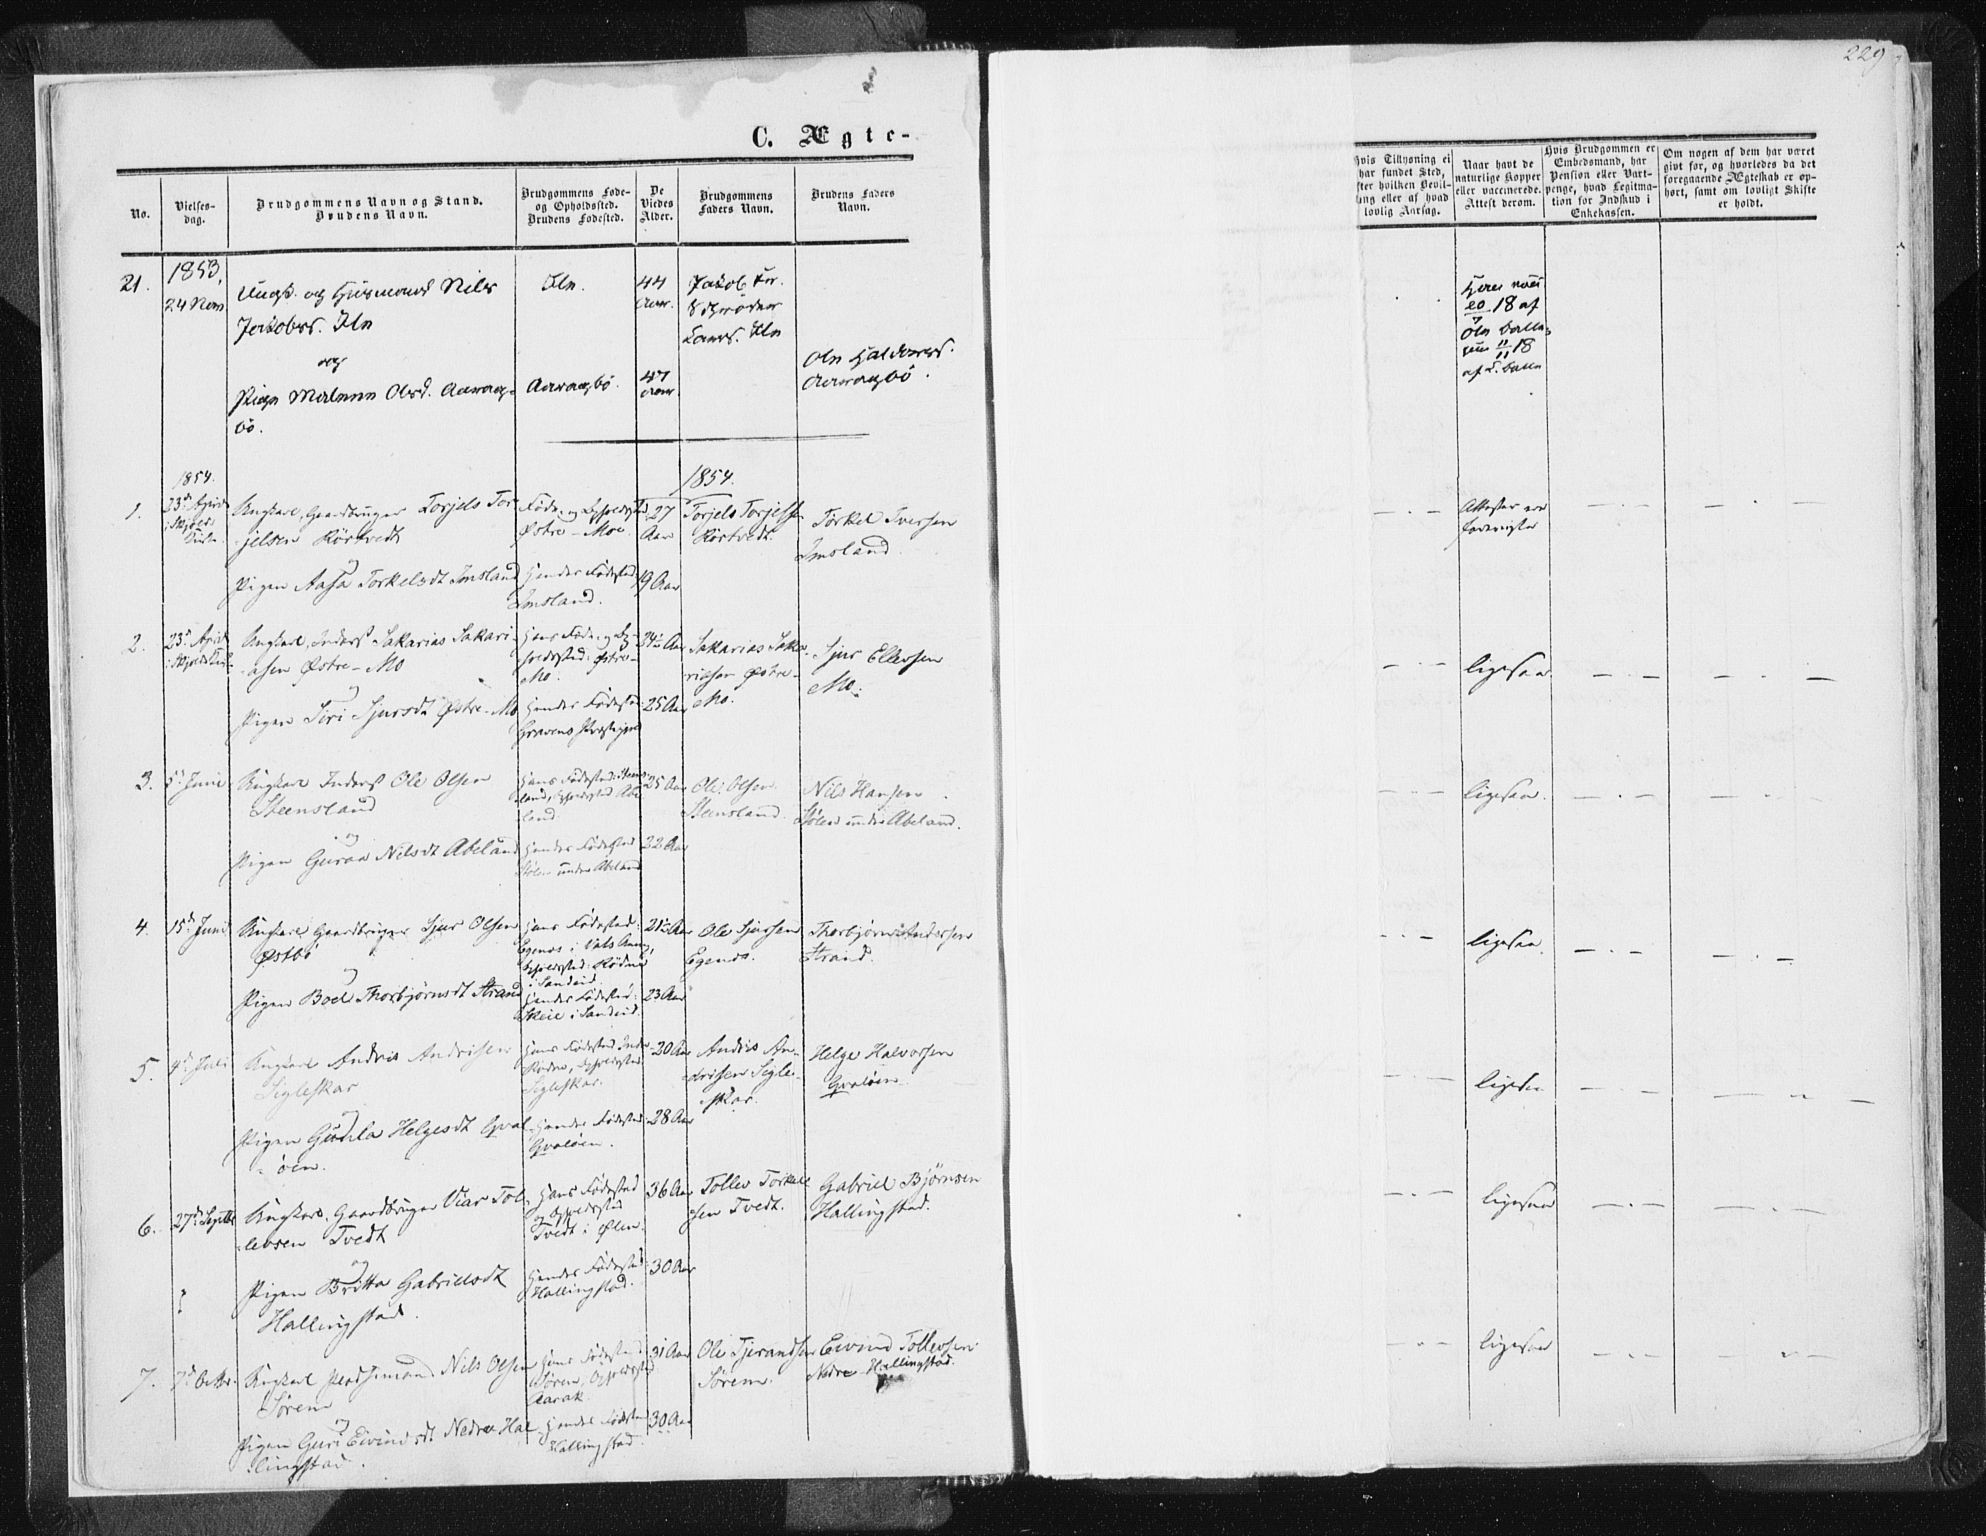 229
C. Ægte-
No.
Vielses-
dag.
Brudgommens Navn og Stand.
Brudens Navn.
Brudgommens Føde-
og Opholdssted.
Brudens Fødested.
De
Viedes
Alder.
Brudgommens
Faders Navn.
Brudens Faders
Navn.
Hvis Tillysning ei
har fundet Sted,
efter hvilken Bevil-
ling eller af hvad
lovlig Aarsag.
Naar havt de
naturlige Kopper
eller vaccinerede.
Attest derom.
Hvis Brudgommen er
Embedsmand, har
Pension eller Vart-
penge, hvad Legitima-
tion for Indskud i
Enkekassen.
Om nogen af dem har været
givt før, og hvorledes da det
foregaaende Ægteskab er op-
hørt, samt om lovligt Skifte
er holdt.
21.
1853.
24 Nov.
Ungk. og Huusmand Nils
Jakobs.
og
Pige Malene Olsd. Aarvag-
bö.
Aarvagbö.
44
Aar.
47
Aar.
Jakob
Ole Haldors.
Aarvagbö.
18 af
18
af
1854.
1854.
1.
23d April
i Skjold
Kirke
Ungkarl, Gaardbruger Torjels Tor-
jelsen Körtvedt
og
Pigen Aasa Torkelsdt Imsland
Føde- og Opholdssted
Østre-Moe
Hendes Fødested:
Imsland.
27
Aar
19 Aar
Torjels Torjelsen
Körtvedt.
Torkel Iversen
Imsland.
Attester ere
foreviste
2.
23d April
i Skjold Kirke
Ungkarl, Inderst Sakarias Sakari-
asen Østre-Mo
og
Pigen Siri Sjursdt Østre-Mo
Hans Føde- og Op-
holdssted: Østre-
Mo.
Hendes Fødested
Gravens Præstegjeld
24 Aar
25 Aar
Sakarias Saka-
riasen Østre-
Mo.
Sjur Ellevsen
Mo.
ligesaa
3.
5d Juni
Ungkarl Inderst Ole Olsen
Steensland
og
Pigen Guroe Nilsdt Abeland
Hans Fødested: Steens-
land, Opholdssted Abe-
land.
Hendes Fødested
Stølen under Abeland
25 Aar
22 Aar
Ole Olsen
Steensland.
Nils Hansen
Stølen under Abeland.
ligesaa.
4.
15d Juni
Ungkarl Gaardbruger Sjur Olsen
Østbö
og
Pigen Boel Thorbjørnsdt Strand
Hans Fødested:
Egenes i Vats Annex,
Opholdssted: Rødne
i Sandeid.
Hendes Fødested:
Skeie i Sandeid.
21 Aar
23 Aar
Ole Sjursen
Egenes.
Thorbjørn Andersen
Strand.
ligesaa.
5.
4d Juli
Ungkarl Andris Andrisen
Sigleskar
og
Pigen Gunla Helgesdt Qval-
øen.
Hans Fødested Indre
Rødne, Opholdssted
Sigleskar.
Hendes Fødested
Qvaløen.
20 Aar
28 Aar
Andris An-
drisen Sigle-
skar.
Helge Halvorsen
Qvaløen.
ligesaa
6.
27d Septbr
Ungkarl, Gaardbruger Viar Tol-
levsen Tvedt
og
Pigen Britta Gabrielsdt
Hallingstad.
Hans Fødested
og Opholdssted
Tvedt i Ølen.
Hendes Fødested
Hallingstad.
36 Aar
30 Aar
Tollev Torkel-
sen Tvedt.
Gabriel Bjørnsen
Hallingstad.
ligesaa
7.
7d Octbr.
Ungkarl Pladsemand Nils Olsen
Sørem
og
Pigen Guri Eivindsdt. Nedre Hal-
lingstad.
Hans Fødested
Sørem, Opholdssted
Aarak.
Hendes Fødested
Hallingstad.
31 Aar
30 Aar
Ole Tjerandsen
Sørem.
Eivind Tollevsen
Nedre Hallingstad.
ligesaa